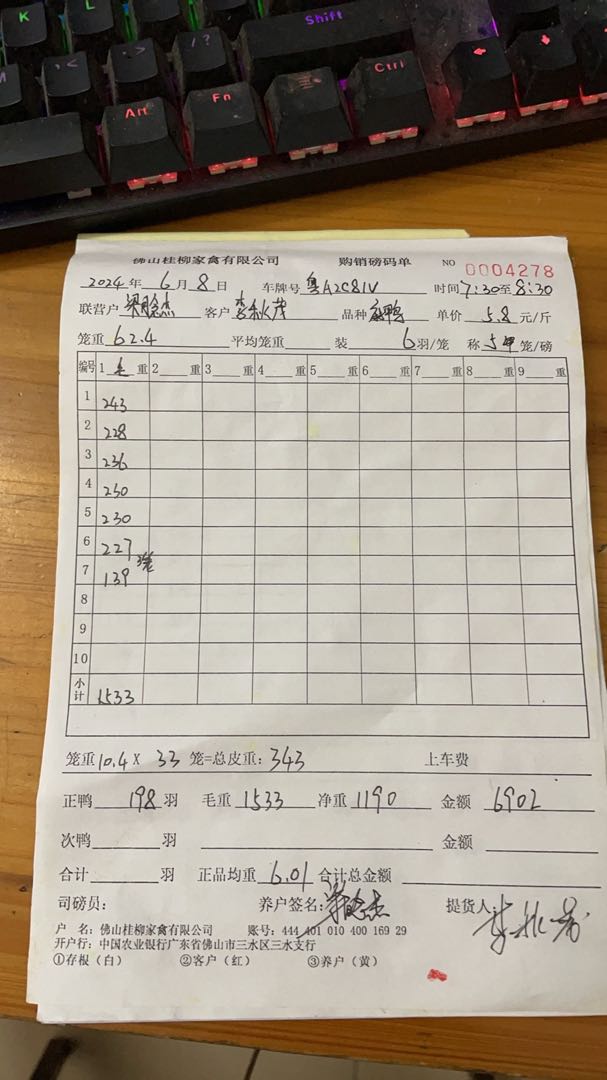 K L
Shift
M < > / ?
Alt Fn Ctrl
佛山桂柳家禽有限公司 购销磅码单 NO 0004278
2024年 6月 8日 车牌号 粤A2C81V 时间7:30至8:30
联营户 客户 李秋茂 品种 麻鸭 单价 5.8 元/斤
笼重 62.4 平均笼重 装 6羽/笼 称 笼/磅
编号 1 毛 重 2 重 3 重 4 重 5 重 6 重 7 重 8 重 9 重
1 243
2 228
3 236
4 230
5 230
6 227
7 139 3笼
8
9
10
小计 1533
笼重10.4× 33 笼=总皮重:343 上车费
正鸭 198 羽 毛重 1533 净重 1190 金额 6902
次鸭 羽 金额
合计 羽 正品均重 6.01 合计总金额
司磅员: 养户签名: 提货人:
户 名: 佛山桂柳家禽有限公司 账号: 444 401 010 400 169 29
开户行: 中国农业银行广东省佛山市三水区三水支行
①存根(白) ②客户(红) ③养户(黄)